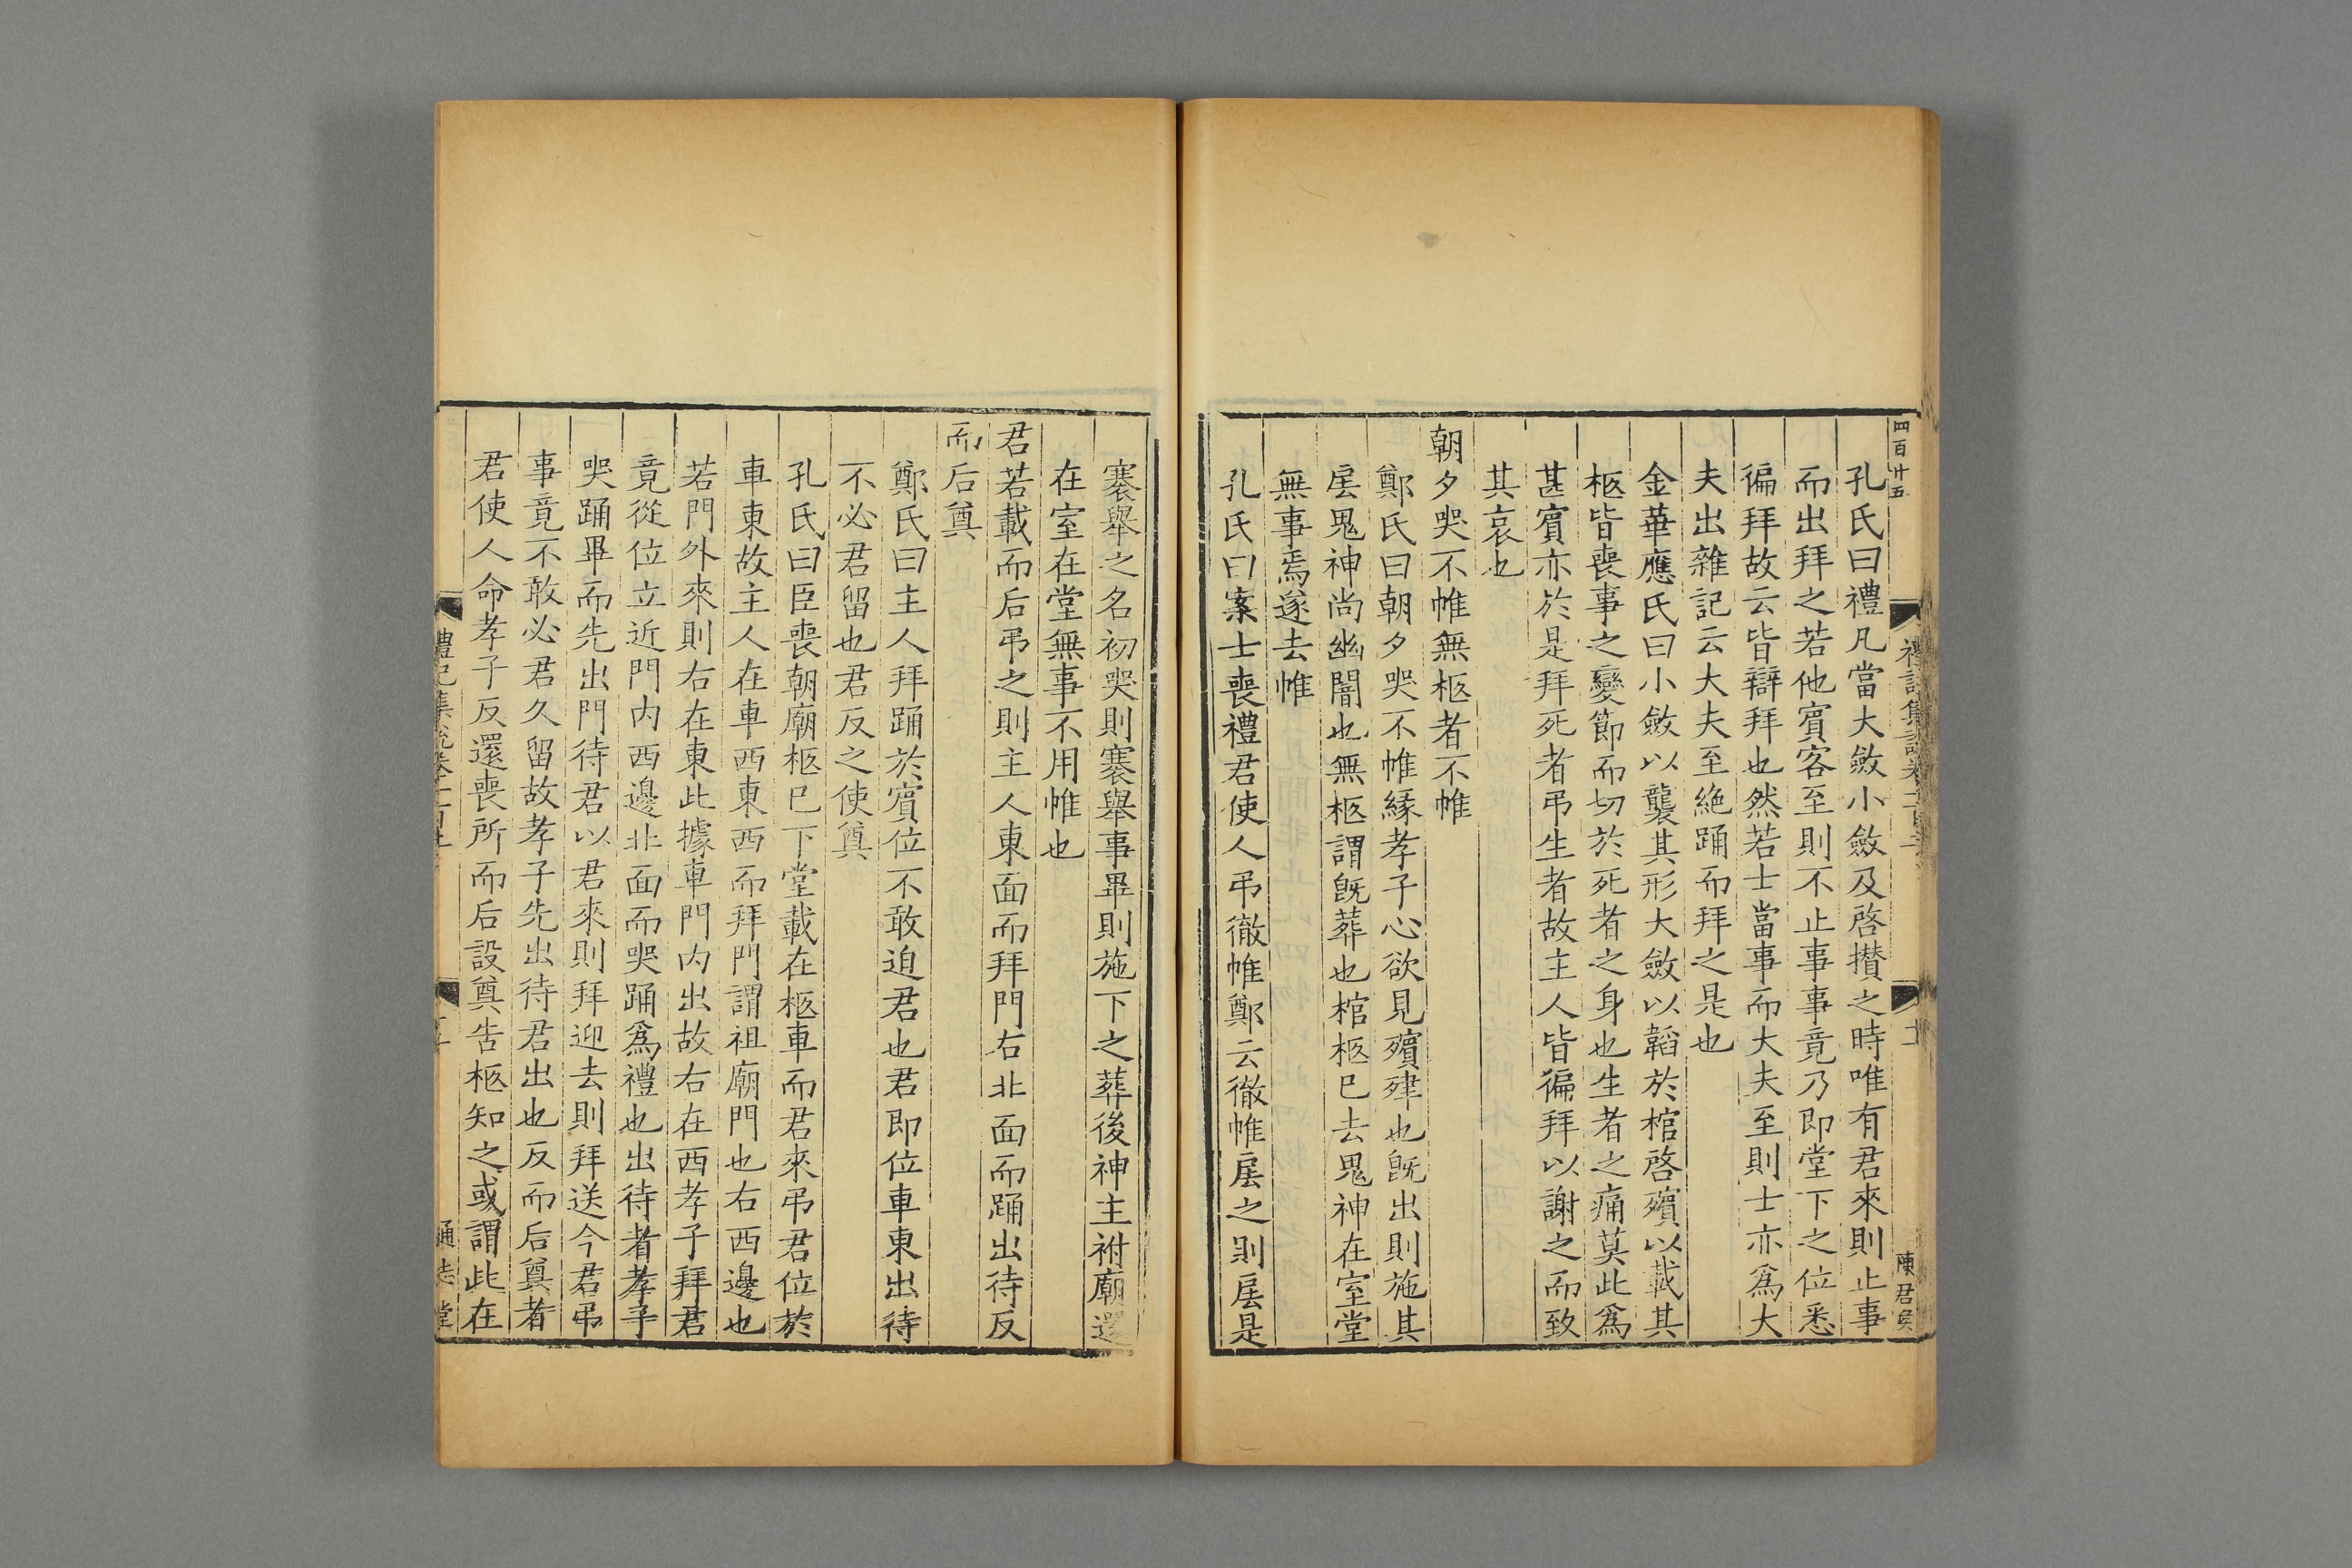 四百廿五
陳君矦
孔氏曰禮凡當大斂小斂及啓攢之時唯有君來則止事
而出拜之若他賓客至則不止事事竟乃即堂下之位悉
徧拜故云皆辯拜也然若士當事而大夫至則士亦爲大
夫出雜記云大夫至絶踊而拜之是也
金華應氏曰小斂以襲其形大斂以韜於棺啓殯以載其
柩皆喪事之變節而切於死者之身也生者之痛莫此爲
甚賓亦於是拜死者弔生者故主人皆徧拜以謝之而致
其哀也
朝夕哭不帷無柩者不帷
鄭氏曰朝夕哭不帷緣孝子心欲見殯肂也旣出則施其
扂鬼神尚幽闇也無柩謂旣葬也棺柩已去鬼神在室堂
無事焉遂去帷
孔氏曰案士喪禮君使人弔徹帷鄭云徹帷扂之則扂是
褰舉之名初哭則褰舉事畢則施下之葬後神主祔廟還
在室在堂無事不用帷也
君若載而后弔之則主人東面而拜門右北面而踊出待反
而后奠
鄭氏曰主人拜踊於賓位不敢迫君也君即位車東出待
不必君留也君反之使奠
孔氏曰臣喪朝廟柩已下堂載在柩車而君來弔君位於
車東故主人在車西東西而拜門謂祖廟門也右西邊也
若門外來則右在東此據車門内出故右在西孝子拜君
竟從位立近門内西邊北面而哭踊爲禮也出待者孝子
哭踊畢而先出門待君以君來則拜迎去則拜送今君弔
事竟不敢必君久留故孝子先出待君出也反而后奠者
君使人命孝子反還喪所而后設奠告柩知之或謂此在
禮記集說卷
通志堂